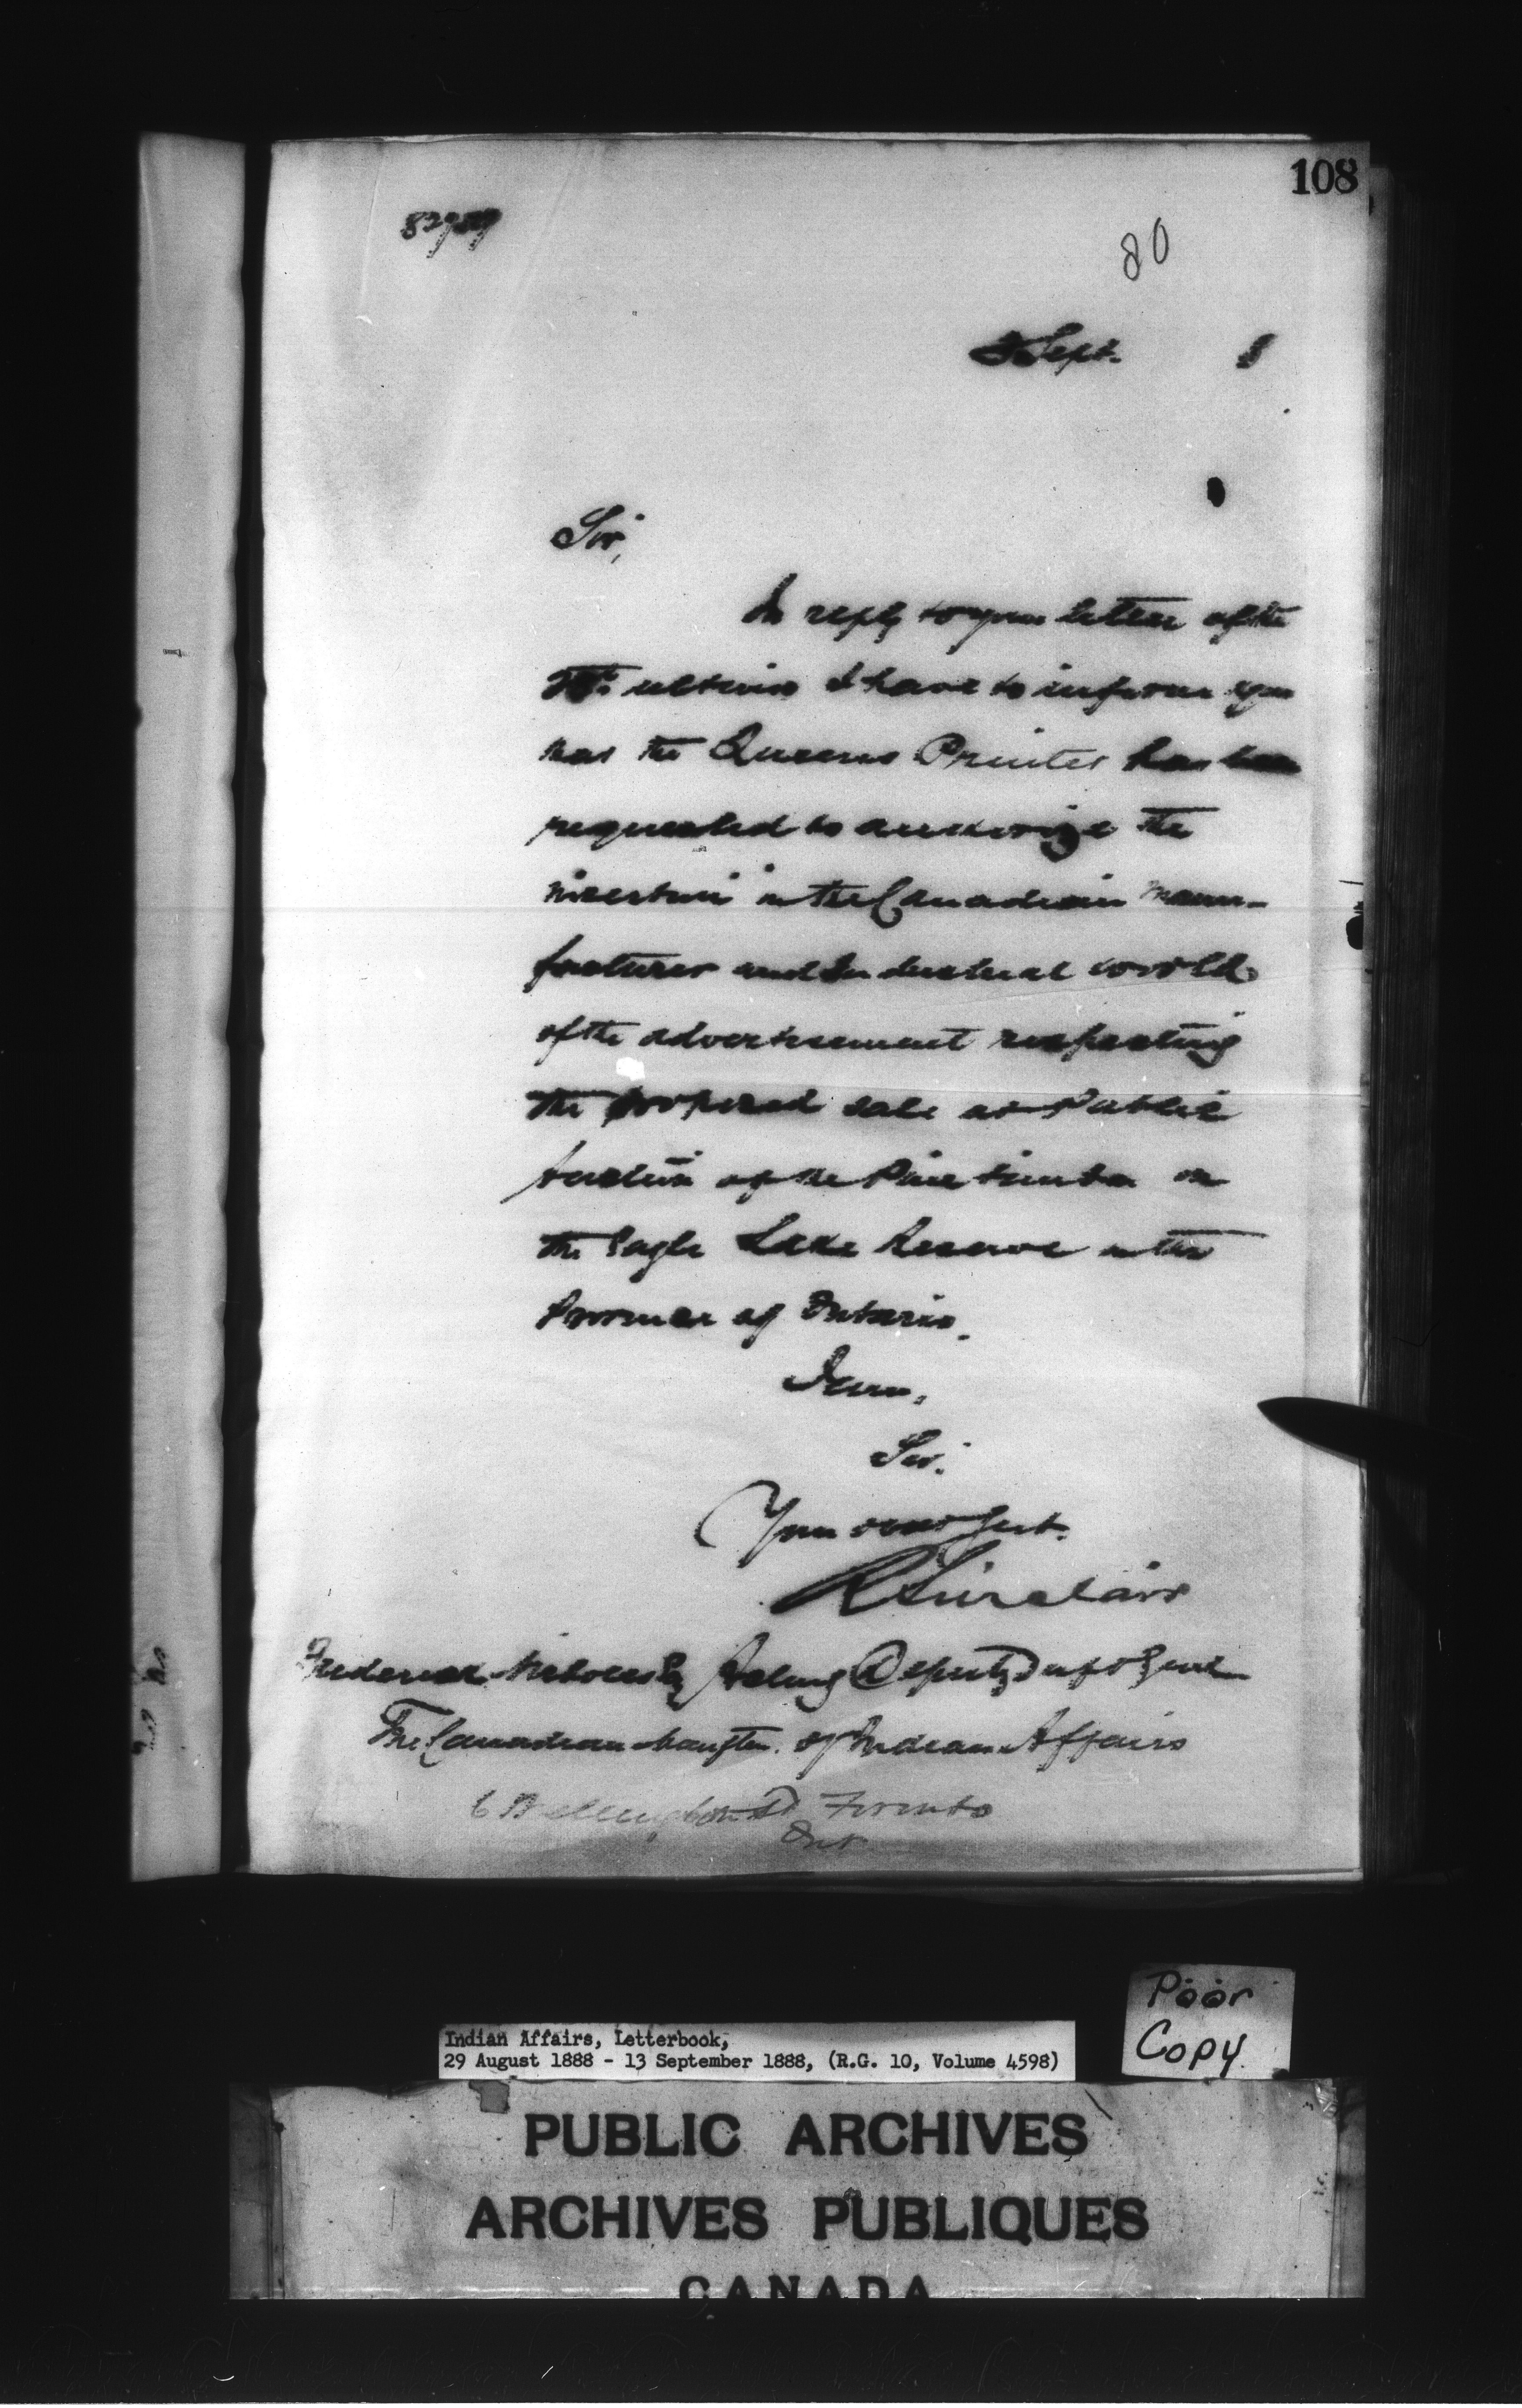 108
80
Sept. 8
Sir,
In reply to your letter of the
ultimo I have to inform you
that the Queens Printer has been
requested to authorize the
insertion in the Canadian Manu-
facturer and Industrial World
of the advertisement respecting
the proposed sale at Public
Auction of the Pine timber on
the Eagle Lake Reserve in the
Province of Ontario.
I am,
Sir.
Your obedt Servt.
R Sinclair
Frederick Nicholls Esq Acting Deputy Supt Genl
The Canadian of Indian Affairs
6 Wellington St Toronto
Ont
Poor
Copy.
Indian Affairs, Letterbook,
29 August 1888 - 13 September 1888, (R.G. 10, Volume 4598)
PUBLIC ARCHIVES
ARCHIVES PUBLIQUES
CANADA